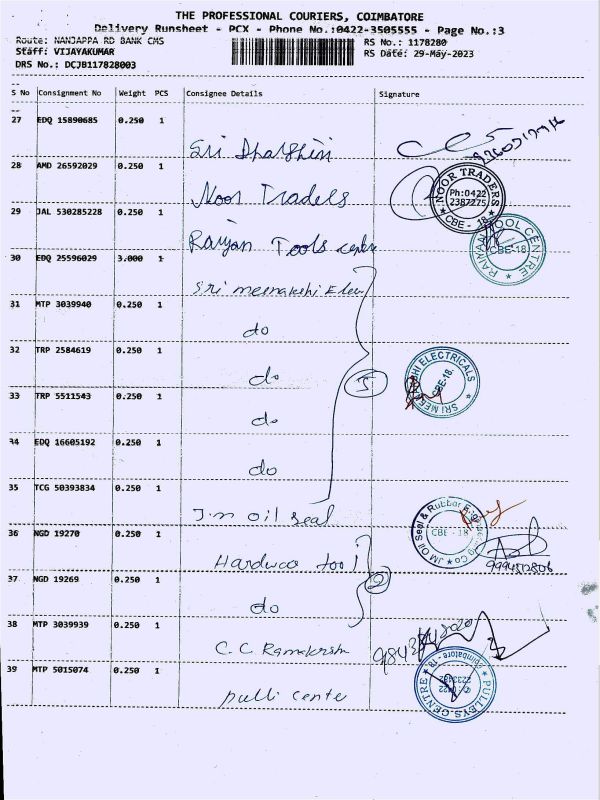 THE PROFESSIONAL COURIERS, COIMBATORE
Delivery Runsheet - PCX - Phone No.:0422-3505555 - Page No.:3
Route: NANJAPPA RD BANK CMS
RS No.: 1178280
Staff: VIJAYAKUMAR
RS Date: 29-May-2023
DRS No.: DCJB117828003
S No Consignment No Weight PCS Consignee Details Signature
27 EDQ 15890685 0.250 1
Sri Dharshini
28 AMD 26592029 0.250 1
Noor Traders
NOOR TRADERS
Ph:0422
2387275
CBE - 18
29 JAL 530285228 0.250 1
Raiyan Tools centre
TOOL CENTRE
CBE-18
30 EDQ 25596029 3.000 1
Sri meenakshi Elec
31 MTP 3039940 0.250 1
do
32 TRP 2584619 0.250 1
do
5
ELECTRICALS
CBE-18.
33 TRP 5511543 0.250 1
do
34 EDQ 16605192 0.250 1
do
35 TCG 50393834 0.250 1
J.m oil seal
JM Oil Seal & Rubber
CBE - 18
36 NGD 19270 0.250 1
Hardwca tool
9994512806
37 NGD 19269 0.250 1
do
2
38 MTP 3039939 0.250 1
C.C Ramakrish
39 MTP 5015074 0.250 1
pulli cente
PULLEYS CENTRE
Coimbatore - 18